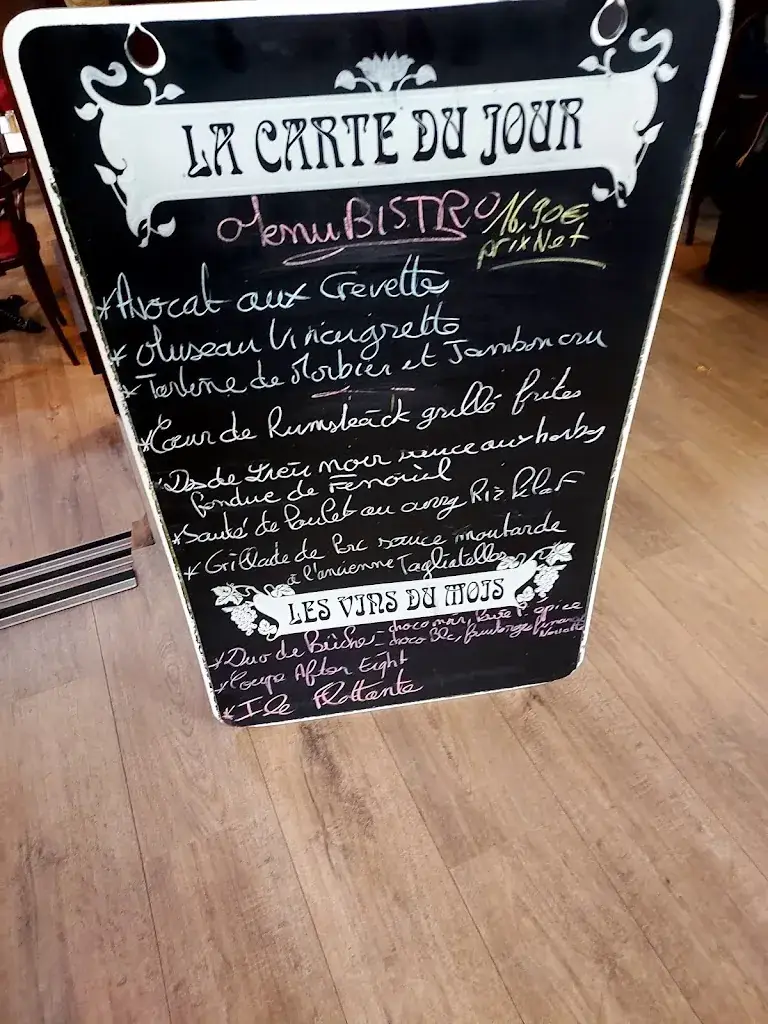 LA CARTE DU JOUR
Menu BISTRO 16,90€
prix Net
*Avocat aux Crevettes
* Museau Vinaigrette
* Tartine de Morbier et Jambon cru
*Cœur de Rumsteack grillé frites
*Dos de Lieu noir sauce aux herbes
fondue de Fenouil
*Sauté de Poulet au curry Riz Pilaf
* Grillade de Porc sauce moutarde
à l'ancienne Tagliatelles
LES VINS DU MOIS
* Duo de Bûches - choco noir, Poire P. épice
- choco Blc,
* Coupe After Eight
* Ile Flottante